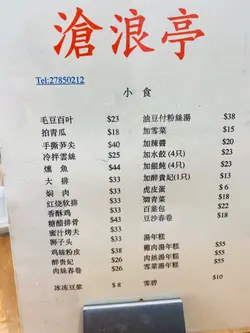 滄浪亭
Tel:27850212
小食
毛豆百叶 $23
拍青瓜 $18
手撕笋尖 $40
冷拌雲絲 $25
燻魚 $44
大排 $33
焖肉 $33
红烧软排 $33
香酥鸡 $33
糖醋排骨 $33
蜜汁烤夫 $33
狮子头 $33
鸡絲粉皮 $38
醉贵妃 $26
肉絲春卷 $26
冰冻豆浆 $8
油豆付粉絲湯 $38
加雪菜 $15
加辣醬 $20
加水餃(4只) $23
加餛飩(4只)
加醉貴妃(1只)
虎皮蛋 $6
燜青菜 $18
百葉包 $22
豆沙春卷
湯年糕
雞肉湯年糕 $55
肉絲湯年糕 $55
雪菜湯年糕
雪碧 $10